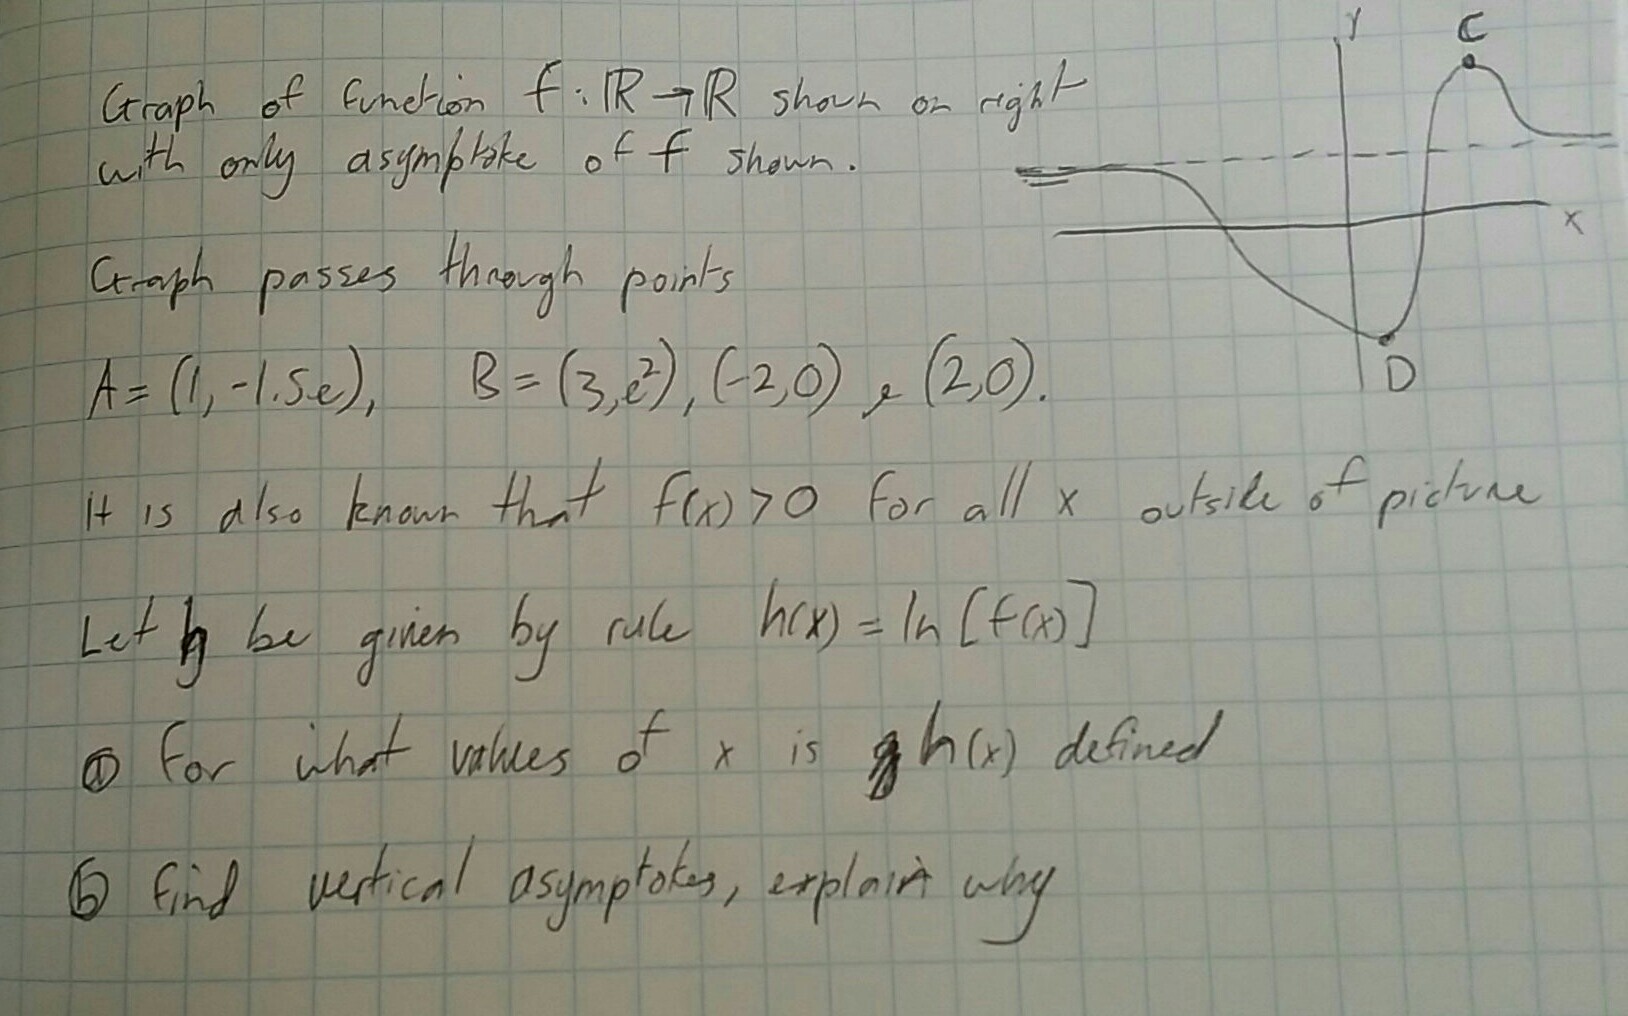 Graph of function f : ℝ → ℝ shown on right
with only asymptote of f shown.
Graph passes through points
A = (1, -1.5e), B = (3, e²), (-2,0), (2,0).
It is also known that f(x) > 0 for all x outside of picture
Let h be given by rule h(x) = ln [f(x)]
ⓐ For what values of x is h(x) defined
ⓑ Find vertical asymptotes, explain why
y
C
x
D